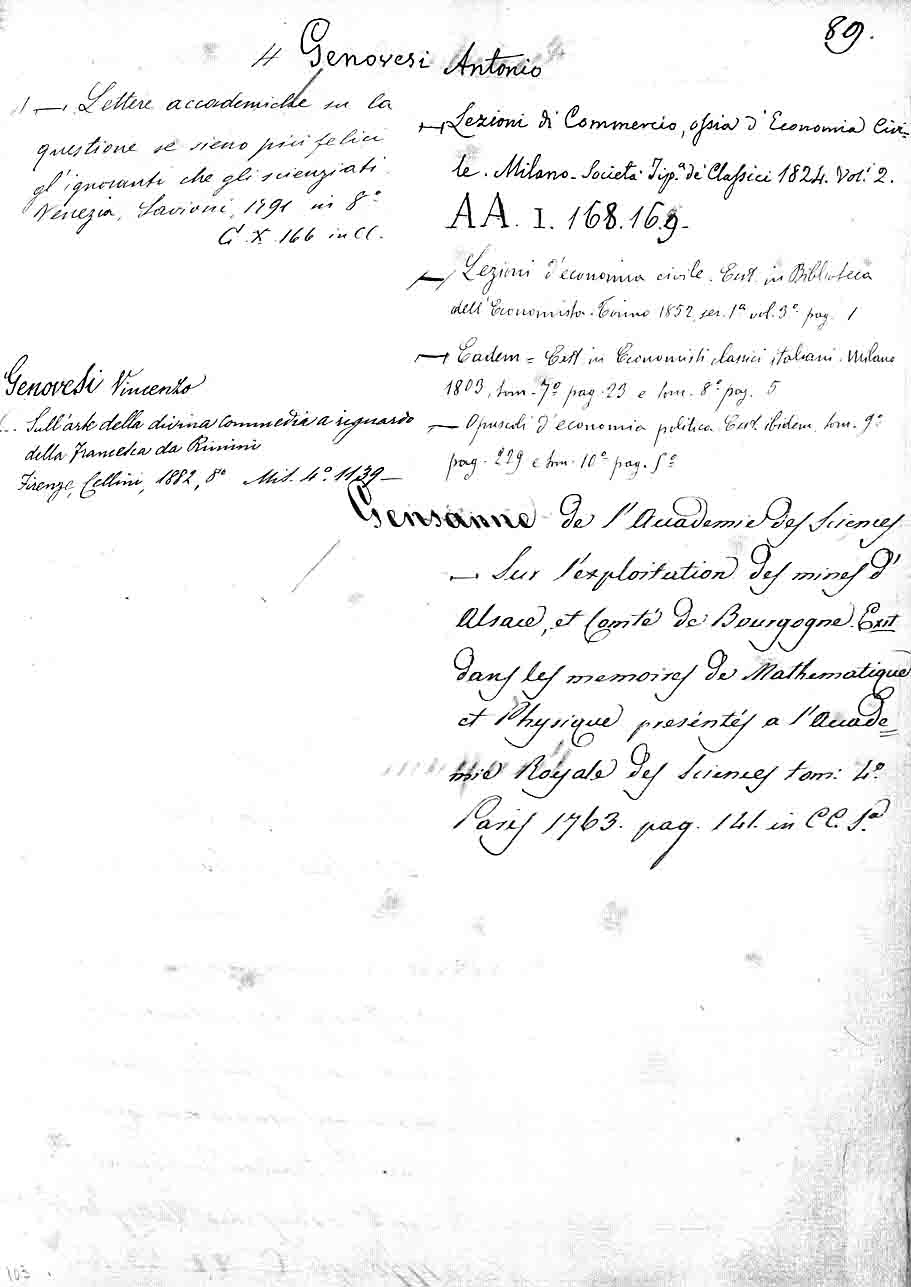 89.
4 Genovesi Antonio
— Lettere accademiche su la
questione se sieno più felici
gl'ignoranti che gli scienziati.
Venezia, Savioni, 1791 in 8°
G. X. 166 in CC.
Genovesi Vincenzo
Sull'arte della divina commedia a riguardo
della Francesca da Rimini
Firenze, Cellini, 1882, 8° Mis. 4°. 1139—
— Lezioni di Commercio, ossia d'Economia Civi-
le. Milano - Società Tip.ª de' Classici 1824. Vol. 2.
AA. I. 168.169-
— Lezioni d'economia civile. Exst. in Biblioteca
dell'Economista. Torino 1852, ser. 1ª vol. 3° pag. 1
— Eadem = Exst. in Economisti classici italiani. Milano
1803, tom. 7° pag. 23 e tom. 8° pag. 5
— Opuscoli d'economia politica. Exst. ibidem, tom. 9°
pag. 229 e tom. 10° pag. 5°
Gensanne de l'Accademie des Sciences
— Sur l'exploitation des mines d'
Alsace, et Comté de Bourgogne. Exit
dans les memoires de Mathematique
et Physique préséntés a l'Accade=
mie Royale des Sciences tom: 4°.
Paris 1763. pag. 141. in CC. 5ª
103